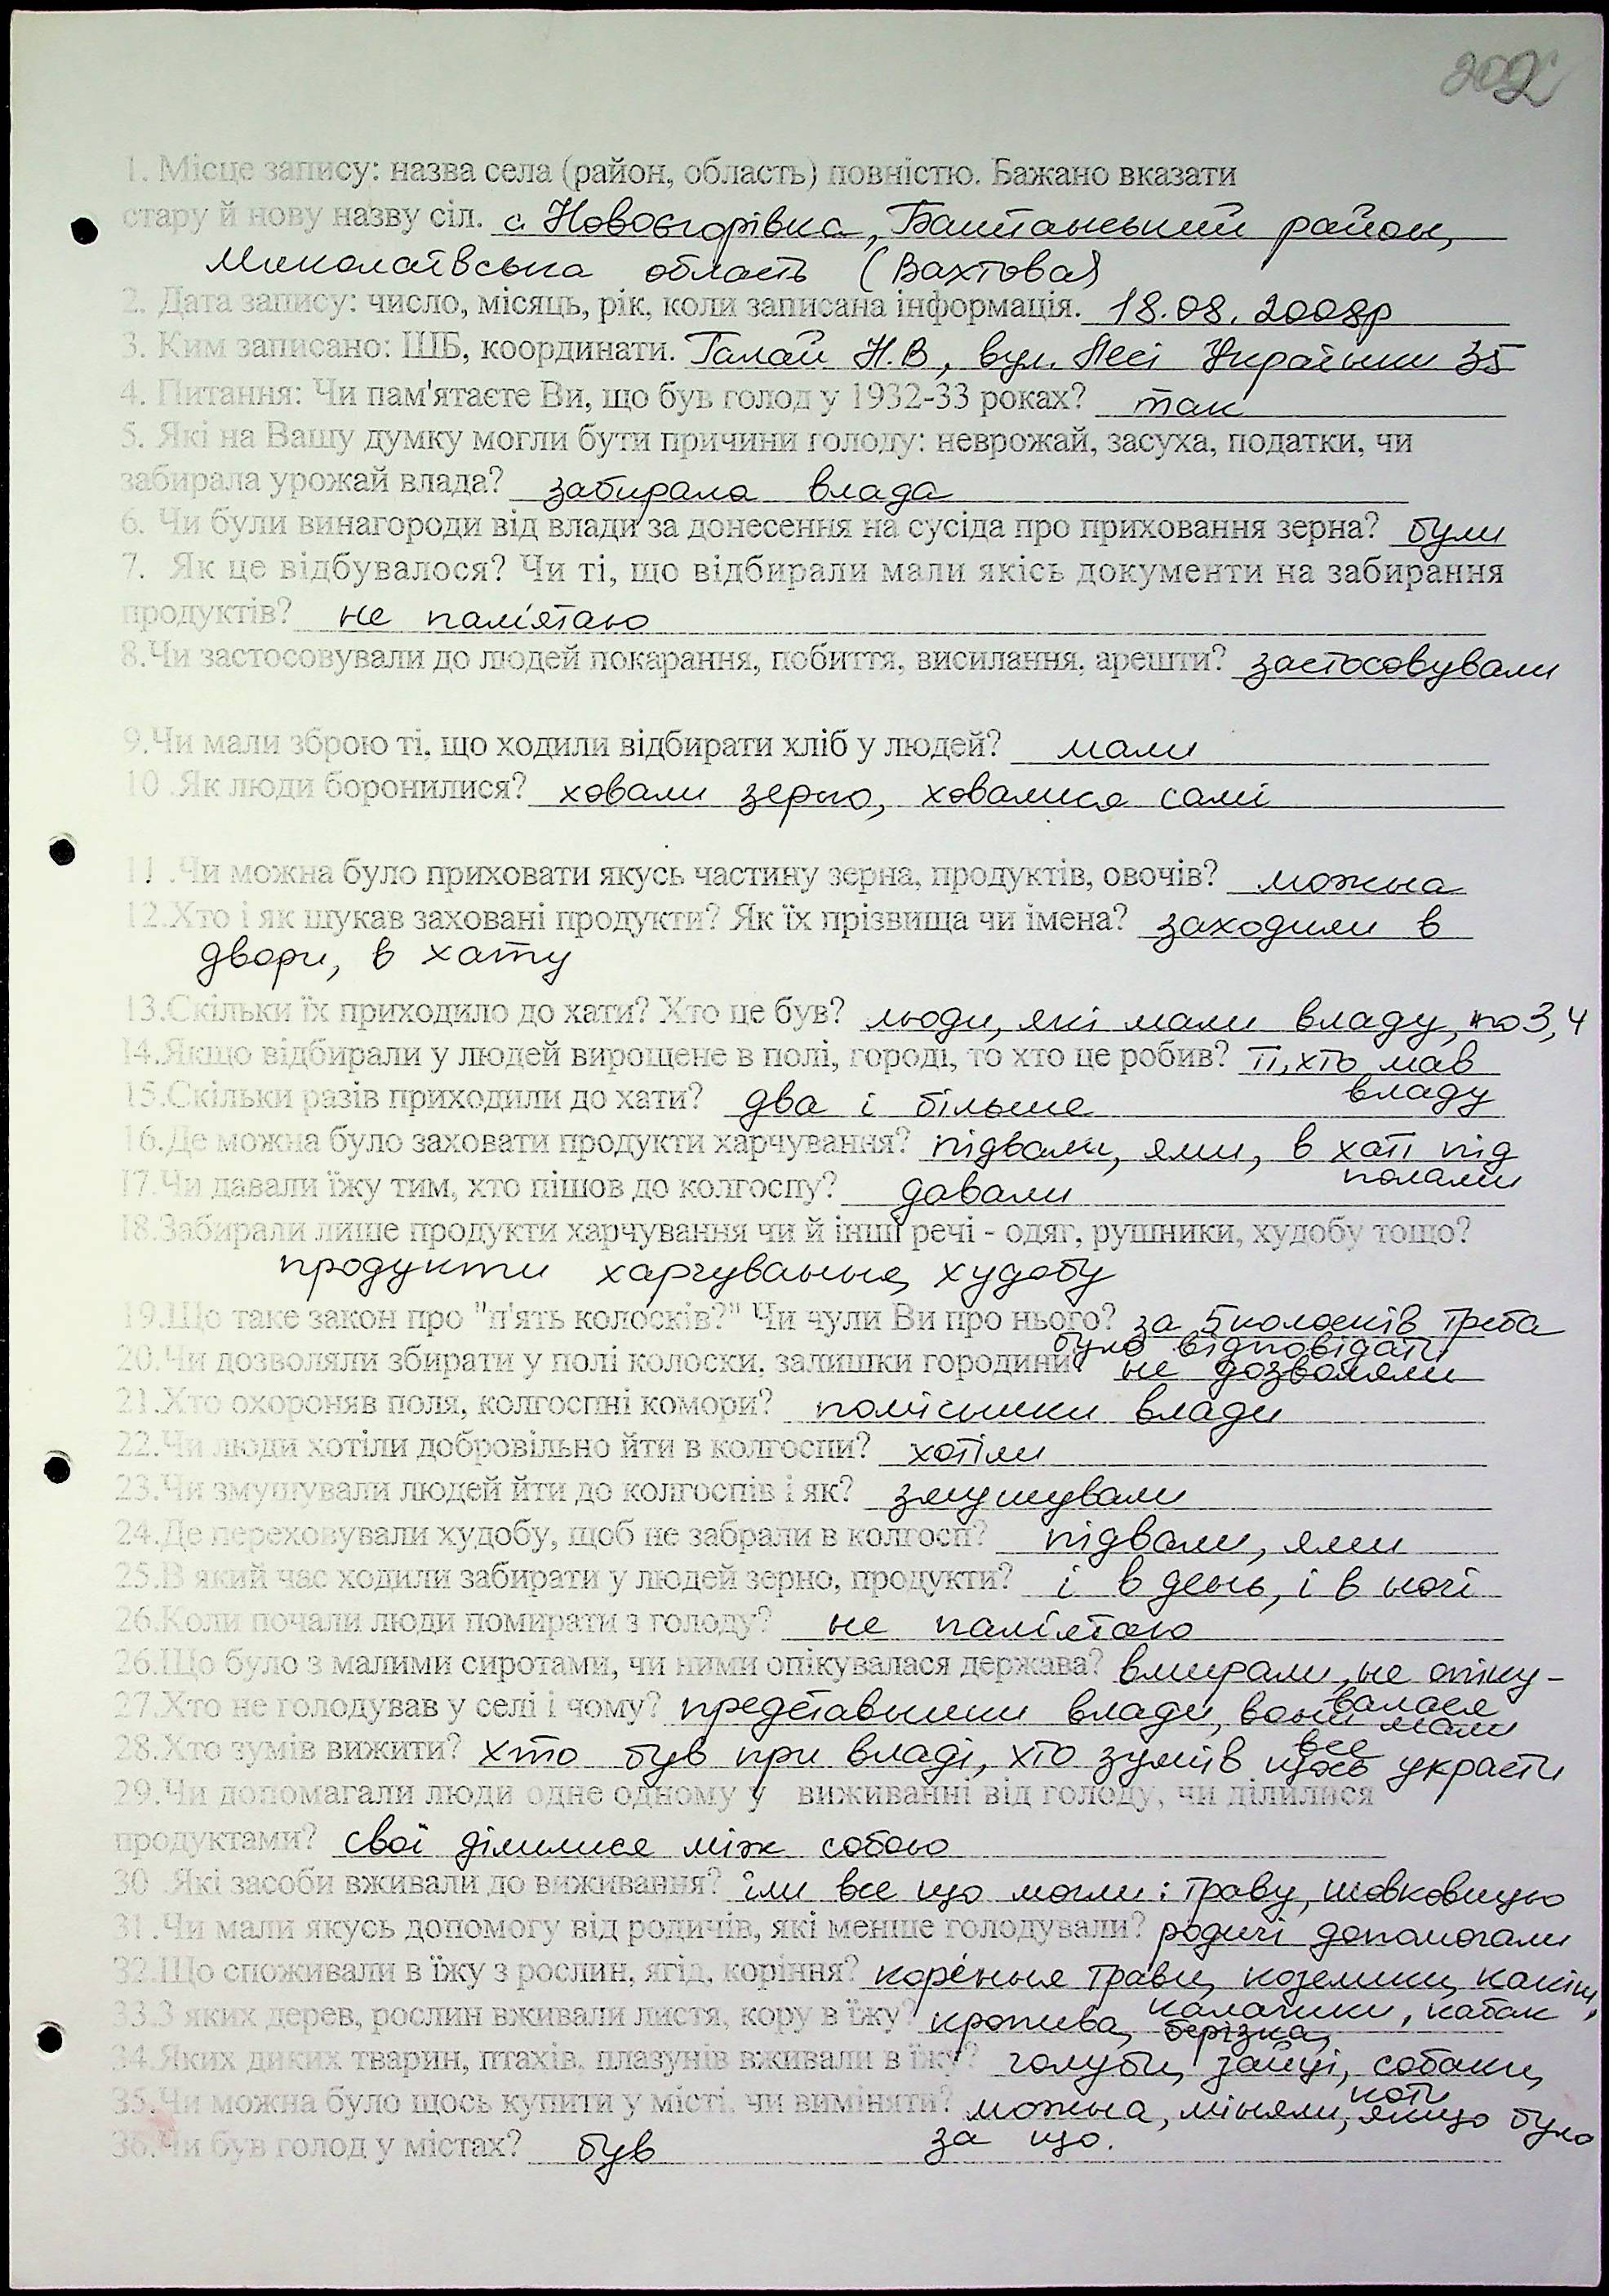 202
1. Місце запису: назва села (район, область) повністю. Бажано вказати
стару й нову назву сіл. с. Новоєгорівка, Баштанський район,
Миколаївська область (Вахтова)
2. Дата запису: число, місяць, рік, коли записана інформація. 18.08.2008р
3. Ким записано: ПІБ, координати. Галай Н.В, вул. Лесі Українки 35
4. Питання: Чи пам'ятаєте Ви, що був голод у 1932-33 роках? так
5. Які на Вашу думку могли бути причини голоду: неврожай, засуха, податки, чи
забирала урожай влада? забирала влада
6. Чи були винагороди від влади за донесення на сусіда про приховання зерна? були
7. Як це відбувалося? Чи ті, що відбирали мали якісь документи на забирання
продуктів? не пам'ятаю
8.Чи застосовували до людей покарання, побиття, висилання, арешти? застосовували
9.Чи мали зброю ті, що ходили відбирати хліб у людей? мали
10 .Як люди боронилися? ховали зерно, ховалися самі
11 .Чи можна було приховати якусь частину зерна, продуктів, овочів? можна
12.Хто і як шукав заховані продукти? Як їх прізвища чи імена? заходили в
двори, в хату
13.Скільки їх приходило до хати? Хто це був? люди, які мали владу, по 3,4
14.Якщо відбирали у людей вирощене в полі, городі, то хто це робив? ті, хто мав
владу
15.Скільки разів приходили до хати? два і більше
16.Де можна було заховати продукти харчування? підвали, ями, в хаті під
полами
17.Чи давали їжу тим, хто пішов до колгоспу? давали
18.Забирали лише продукти харчування чи й інші речі - одяг, рушники, худобу тощо?
продукти харчування, худобу
19.Що таке закон про "п'ять колосків?" Чи чули Ви про нього? за 5 колосків треба
було відповідати
20.Чи дозволяли збирати у полі колоски, залишки городини? не дозволяли
21.Хто охороняв поля, колгоспні комори? помісники влади
22.Чи люди хотіли добровільно йти в колгоспи? хотіли
23.Чи змушували людей йти до колгоспів і як? змушували
24.Де переховували худобу, щоб не забрали в колгосп? підвали, ями
25.В який час ходили забирати у людей зерно, продукти? і в день, і в ночі
26.Коли почали люди помирати з голоду? не пам'ятаю
26.Що було з малими сиротами, чи ними опікувалася держава? вмирали, не опіку-
валася
27.Хто не голодував у селі і чому? представники влади, вони мали
все
28.Хто зумів вижити? хто був при владі, хто зумів щось украсти
29.Чи допомагали люди одне одному у виживанні від голоду, чи ділилися
продуктами? свої ділилися між собою
30 .Які засоби вживали до виживання? їли все що могли: траву, шовковицю
31.Чи мали якусь допомогу від родичів, які менше голодували? родичі допомагали
32.Що споживали в їжу з рослин, ягід, коріння? коріння трави, козелики,
калачики, кабак
33.З яких дерев, рослин вживали листя, кору в їжу? кропива, берізка,
34.Яких диких тварин, птахів, плазунів вживали в їжу? голуби, зайці, собаки,
коти
35.Чи можна було щось купити у місті, чи виміняти? можна, міняли, якщо було
за що.
36.Чи був голод у містах? був